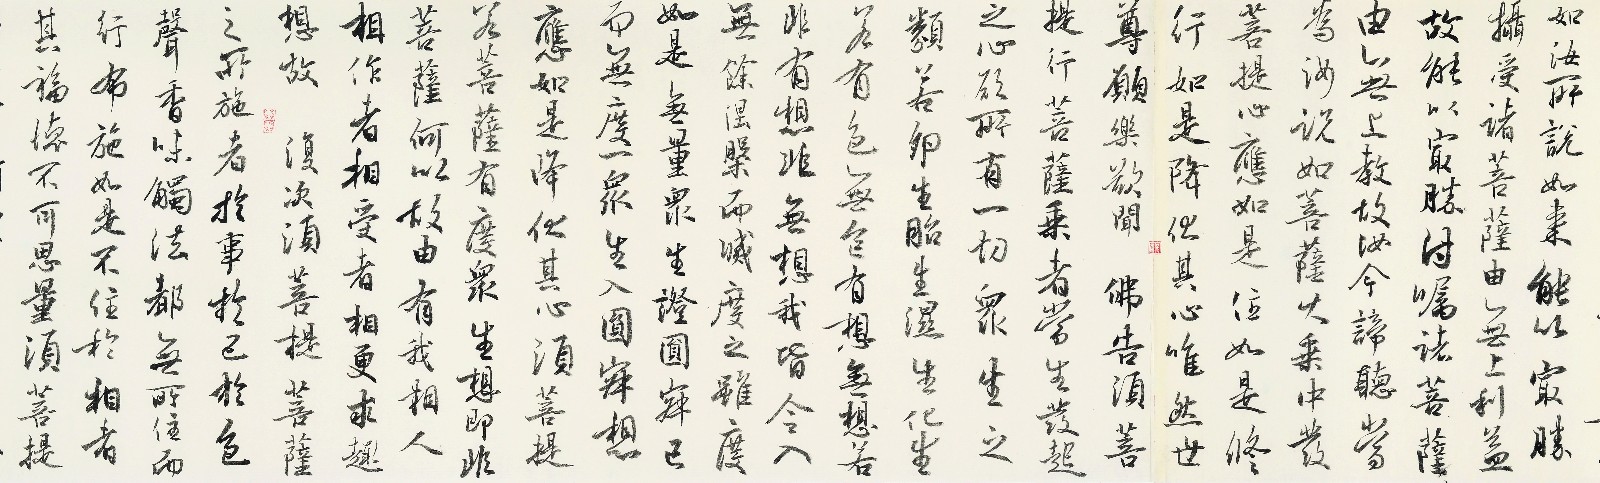 如汝所說如来能以冣勝
攝受諸菩薩由無上利益
故能以冣勝付嘱諸菩薩
由無上教故汝今諦聽當
為汝說如菩薩大乘中發
菩提心應如是住如是修
行如是降伏其心唯然世
尊願樂欲聞 佛告須菩
提行菩薩乘者當生發起
之心欲所有一切眾生之
類若卵生胎生濕生化生
若有色無色有想無想若
非有想非無想我皆令入
無餘涅槃而滅度之雖度
如是無量眾生證圓寂已
而無度一眾生入圓寂想
應如是降伏其心須菩提
若菩薩有度眾生想即非
菩薩何以故由有我相人
相作者相受者相更求趣
想故 復次須菩提菩薩
之所施者於事於己於色
聲香味觸法都無所住而
行布施如是不住於相者
其福德不可思量須菩提